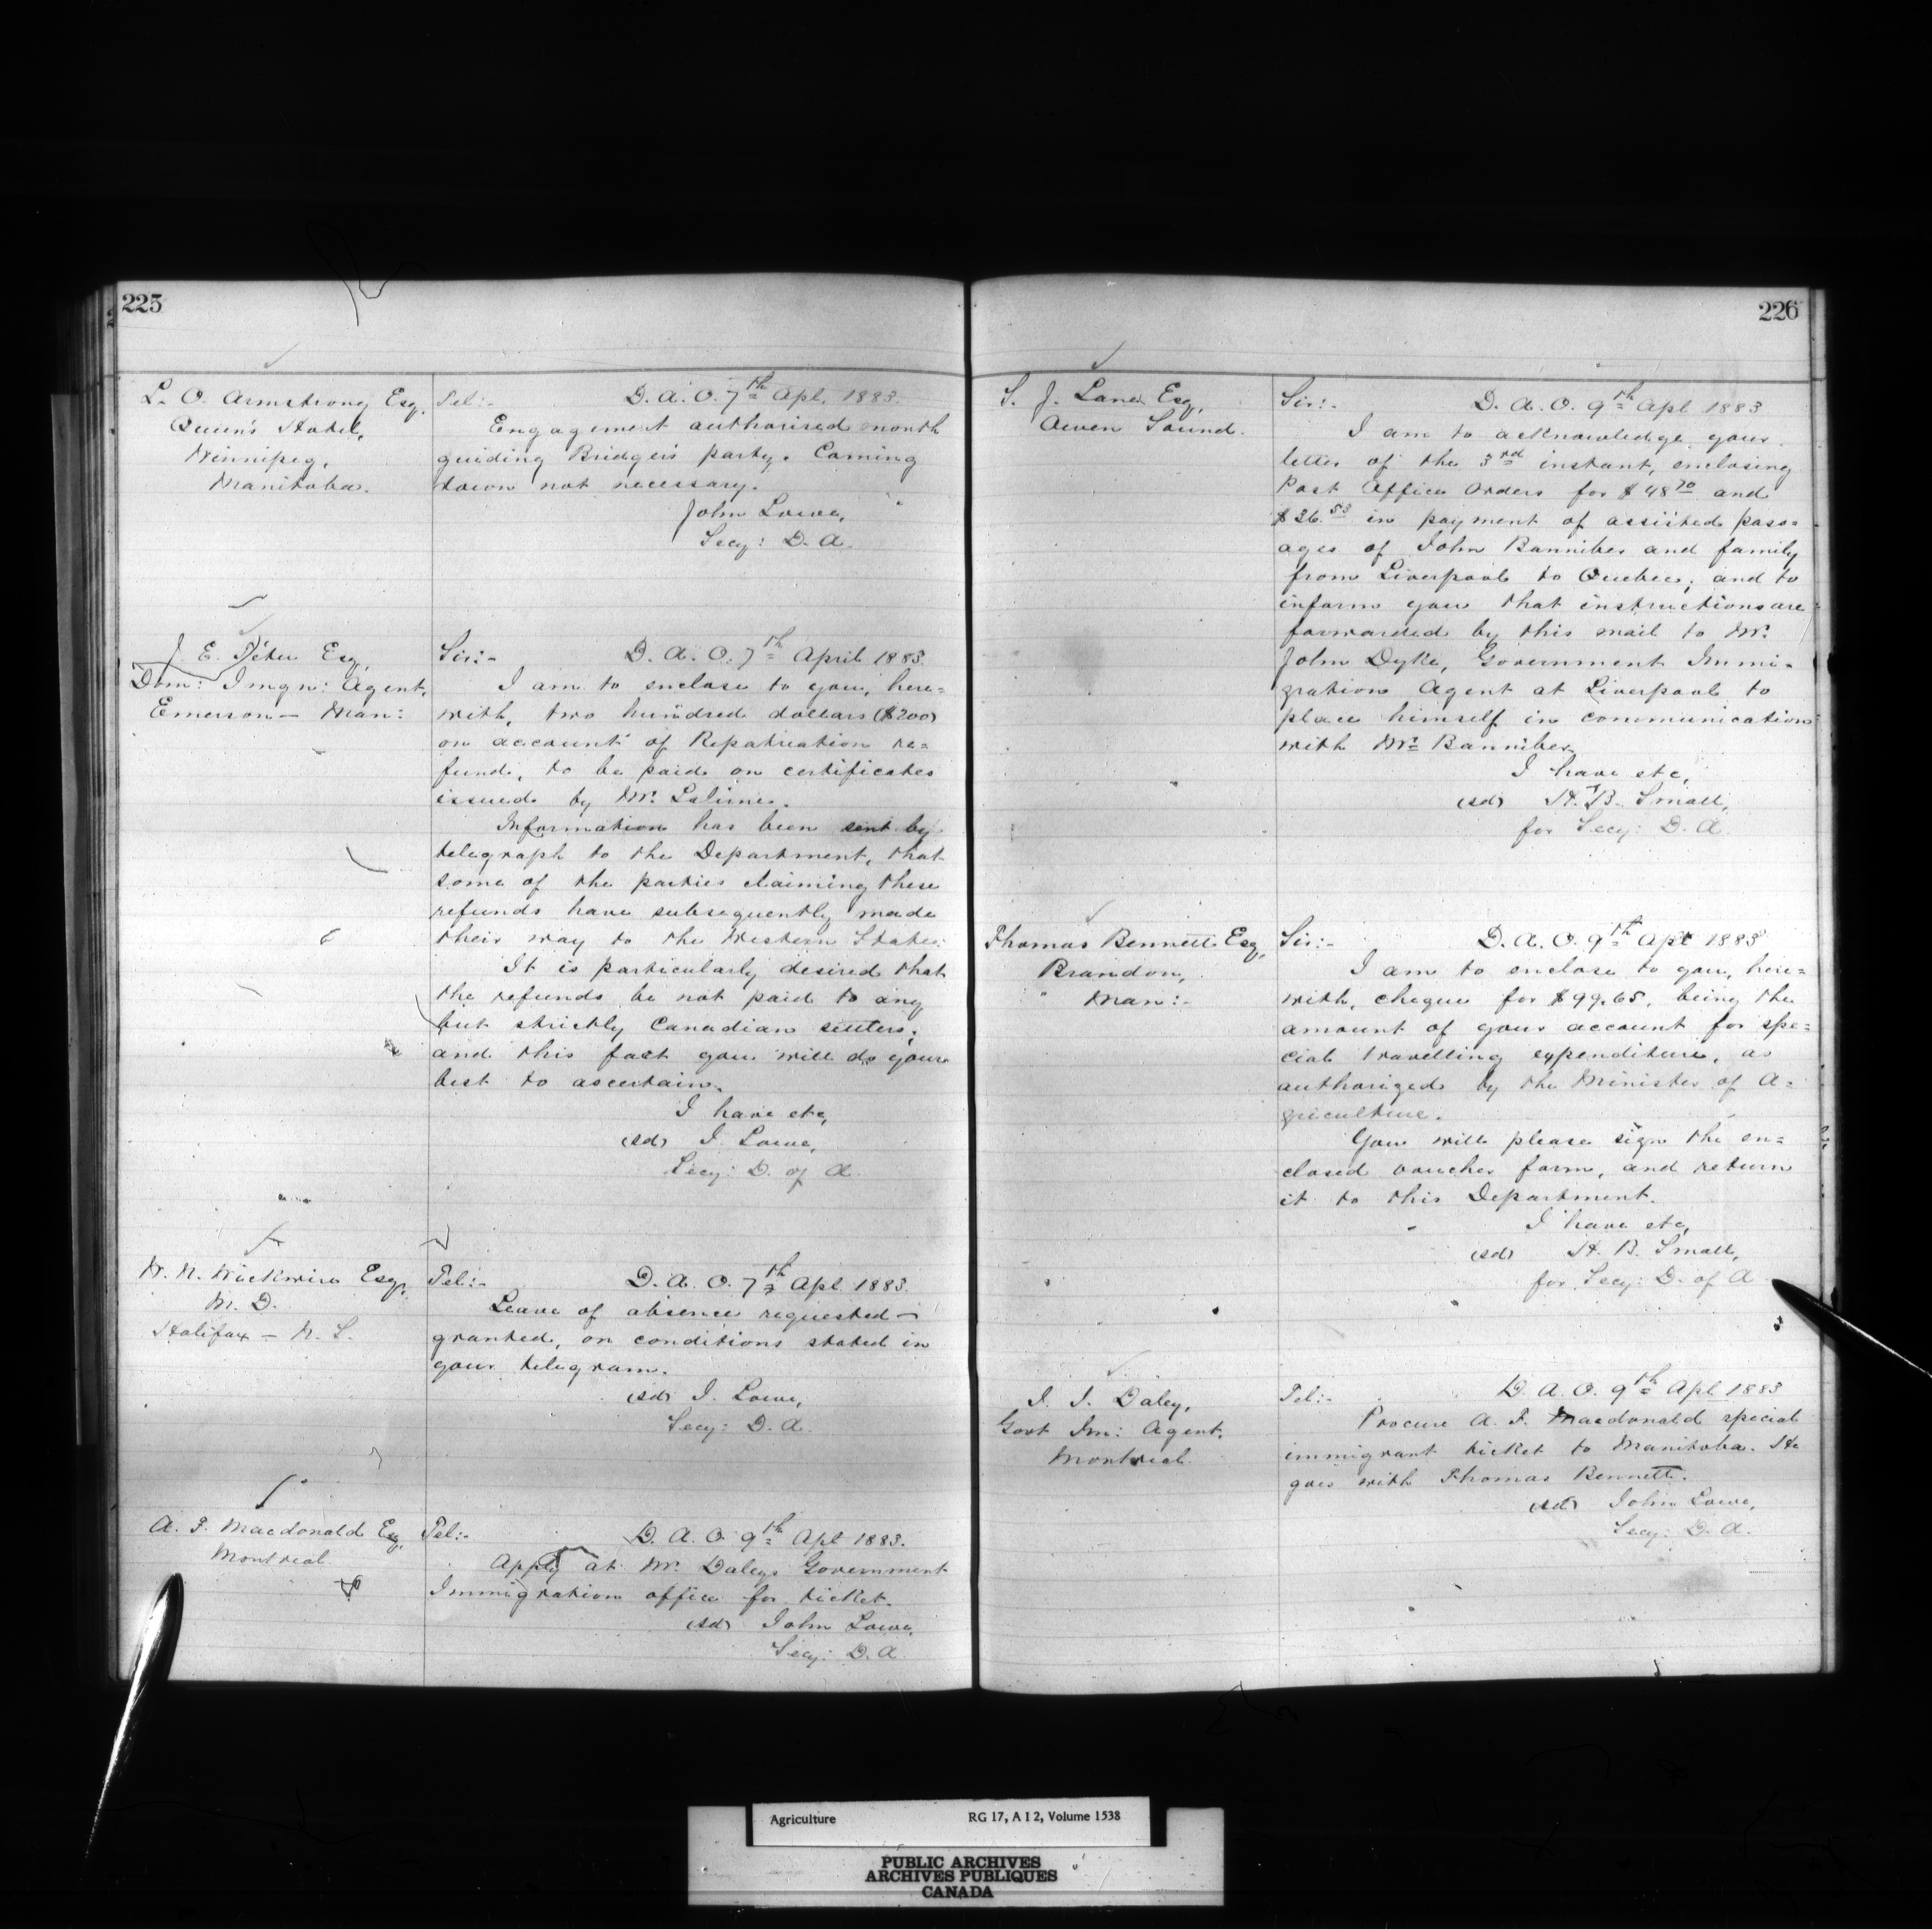 225
L. O. Armstrong Esq,
Queen's Hotel,
Winnipeg,
Manitoba.
Tel:- D. A. O. 7th Apl. 1883.
Engagement authorised month
guiding Bridge's party. Coming
down not necessary.
John Lowe,
Secy: D. A.
J. E. Têtu Esq,
Dom: Imgn: Agent,
Emerson - Man:
Sir:- D. A. O. 7th April 1883.
I am to enclose to you, here=
with, two hundred dollars ($200)
on account of Repatriation re=
fund, to be paid on certificates
issued by Mr. Lalime.
Information has been sent by
telegraph to the Department, that
some of the parties claiming these
refunds have subsequently made
their way to the Western States.
It is particularly desired that
the refunds be not paid to any
but strictly Canadian settlers;
and this fact you will do your
best to ascertain.
I have etc,
(sd) J. Lowe,
Secy: D. of A.
W. N. Wickwire Esq,
M. D.
Halifax - N. S.
Tel:- D. A. O. 7th Apl. 1883.
Leave of absence requested -
granted, on conditions stated in
your telegram.
(sd) J. Lowe,
Secy: D. A.
A. F. Macdonald Esq,
Montreal
Tel:- D. A. O. 9th Apl 1883.
Apply at Mr. Daleys Government
Immigration office for ticket.
(sd) John Lowe,
Secy: D. A.
226
S. J. Lane Esq,
Owen Sound.
Sir:- D. A. O. 9th Apl 1883
I am to acknowledge your
letter of the 3rd instant, enclosing
Post Office Orders for $48.70 and
$36.53 in payment of assisted pass=
ages of John Banniber and family
from Liverpool to Quebec; and to
inform you that instructions are
forwarded by this mail to Mr.
John Dyke, Government Immi-
gration Agent at Liverpool to
place himself in communication
with Mr. Banniber.
I have etc,
(sd) H. B. Small,
for Secy: D. A.
Thomas Bennett Esq,
Brandon,
Man:-
Sir:- D. A. O. 9th Apl 1883
I am to enclose to you, here=
with, cheque for $99.65, being the
amount of your account for spe=
cial travelling expenditure, as
authorized by the Minister of A=
griculture.
You will please sign the en=
closed voucher form, and return
it to this Department.
I have etc,
(sd) H. B. Small,
for Secy: D. of A.
J. J. Daley,
Govt Im: Agent,
Montreal.
Tel:- D. A. O. 9th Apl 1883
Procure A. F. Macdonald special
immigrant ticket to Manitoba. He
goes with Thomas Bennett.
(sd) John Lowe,
Secy: D. A.
Agriculture RG 17, A I 2, Volume 1538
PUBLIC ARCHIVES
ARCHIVES PUBLIQUES
CANADA